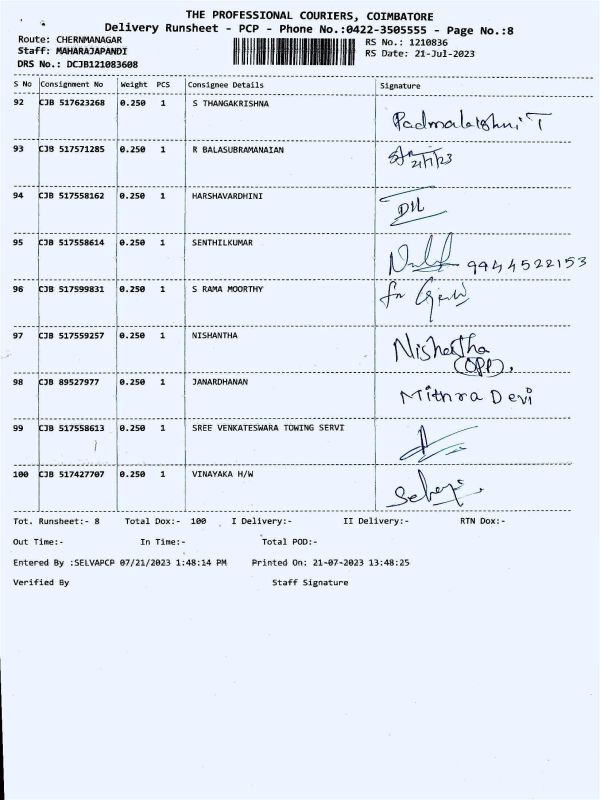 THE PROFESSIONAL COURIERS, COIMBATORE
Delivery Runsheet - PCP - Phone No.:0422-3505555 - Page No.:8
Route: CHERNMANAGAR RS No.: 1210836
Staff: MAHARAJAPANDI RS Date: 21-Jul-2023
DRS No.: DCJB121083608
S No Consignment No Weight PCS Consignee Details Signature
92 CJB 517623268 0.250 1 S THANGAKRISHNA
Padmalakshmi T
93 CJB 517571285 0.250 1 R BALASUBRAMANAIAN
21/7/23
94 CJB 517558162 0.250 1 HARSHAVARDHINI
95 CJB 517558614 0.250 1 SENTHILKUMAR
9944522153
96 CJB 517599831 0.250 1 S RAMA MOORTHY
for
97 CJB 517559257 0.250 1 NISHANTHA
Nishantha
(OPP).
98 CJB 89527977 0.250 1 JANARDHANAN
Mithra Devi
99 CJB 517558613 0.250 1 SREE VENKATESWARA TOWING SERVI
100 CJB 517427707 0.250 1 VINAYAKA H/W
Tot. Runsheet:- 8 Total Dox:- 100 I Delivery:- II Delivery:- RTN Dox:-
Out Time:- In Time:- Total POD:-
Entered By :SELVAPCP 07/21/2023 1:48:14 PM Printed On: 21-07-2023 13:48:25
Verified By Staff Signature